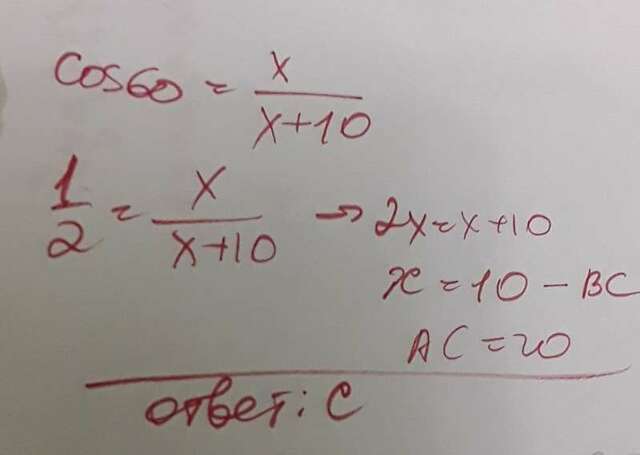 cos60 = x/(x+10)
1/2 = x/(x+10) → 2x=x+10
x=10 – BC
AC=20
ответ: C